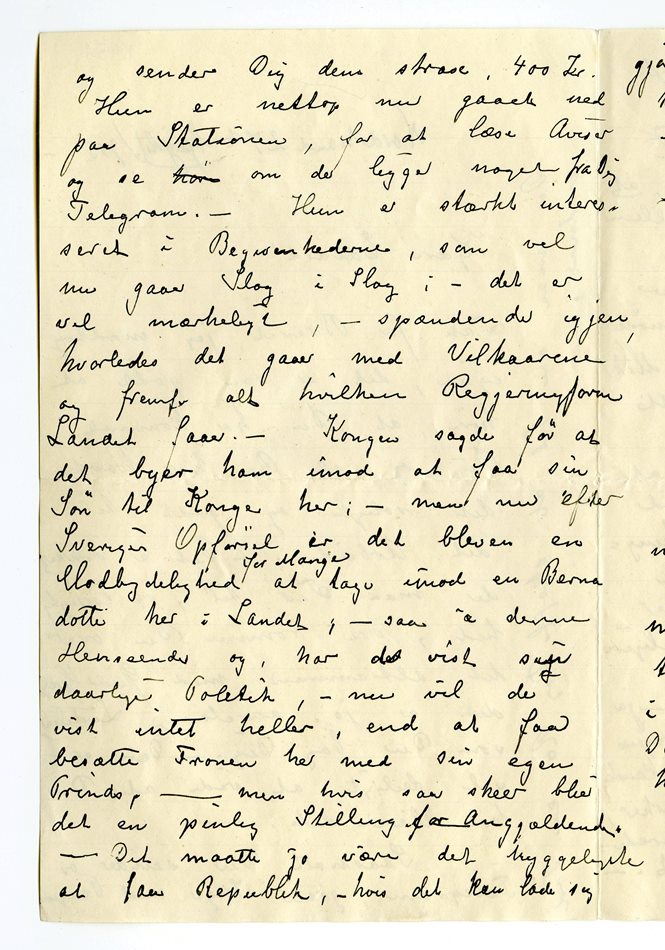 og sender Dig dem strax, 400 Kr.
Hun er nettop nu gaaet ned
paa Stationen, for at læse Aviser
og se om de ligger noget fra Dig
Telegram. — Hun er stærkt interes-
seret i Begivenhederne, som vel
nu gaar Slag i Slag; – det er
vel mærkeligt, – spændende igjen,
hvorledes det gaaer med Vilkaarene
og fremfor alt hvilken Regjeringsform
Landet faaer. — Kongen sagde før at
det byer ham imod at faa sin
Søn til Konge her; – men nu efter
Sveriges Opførsel er det bleven en
Modbydelighed for Mange at tage imod en Berna
dotte her i Landet; – saa i denne
Henseende og, har det vist sig
daarlig Politik, – nu vil de
vist intet heller, end at faa
besætte Tronen her med sin egen
Prinds, — men hvis saa skeer blir
det en pinlig Stilling for Angjældende.
— Det maatte jo være det hyggeligste
at faa Republik, – hvis det kan lade sig